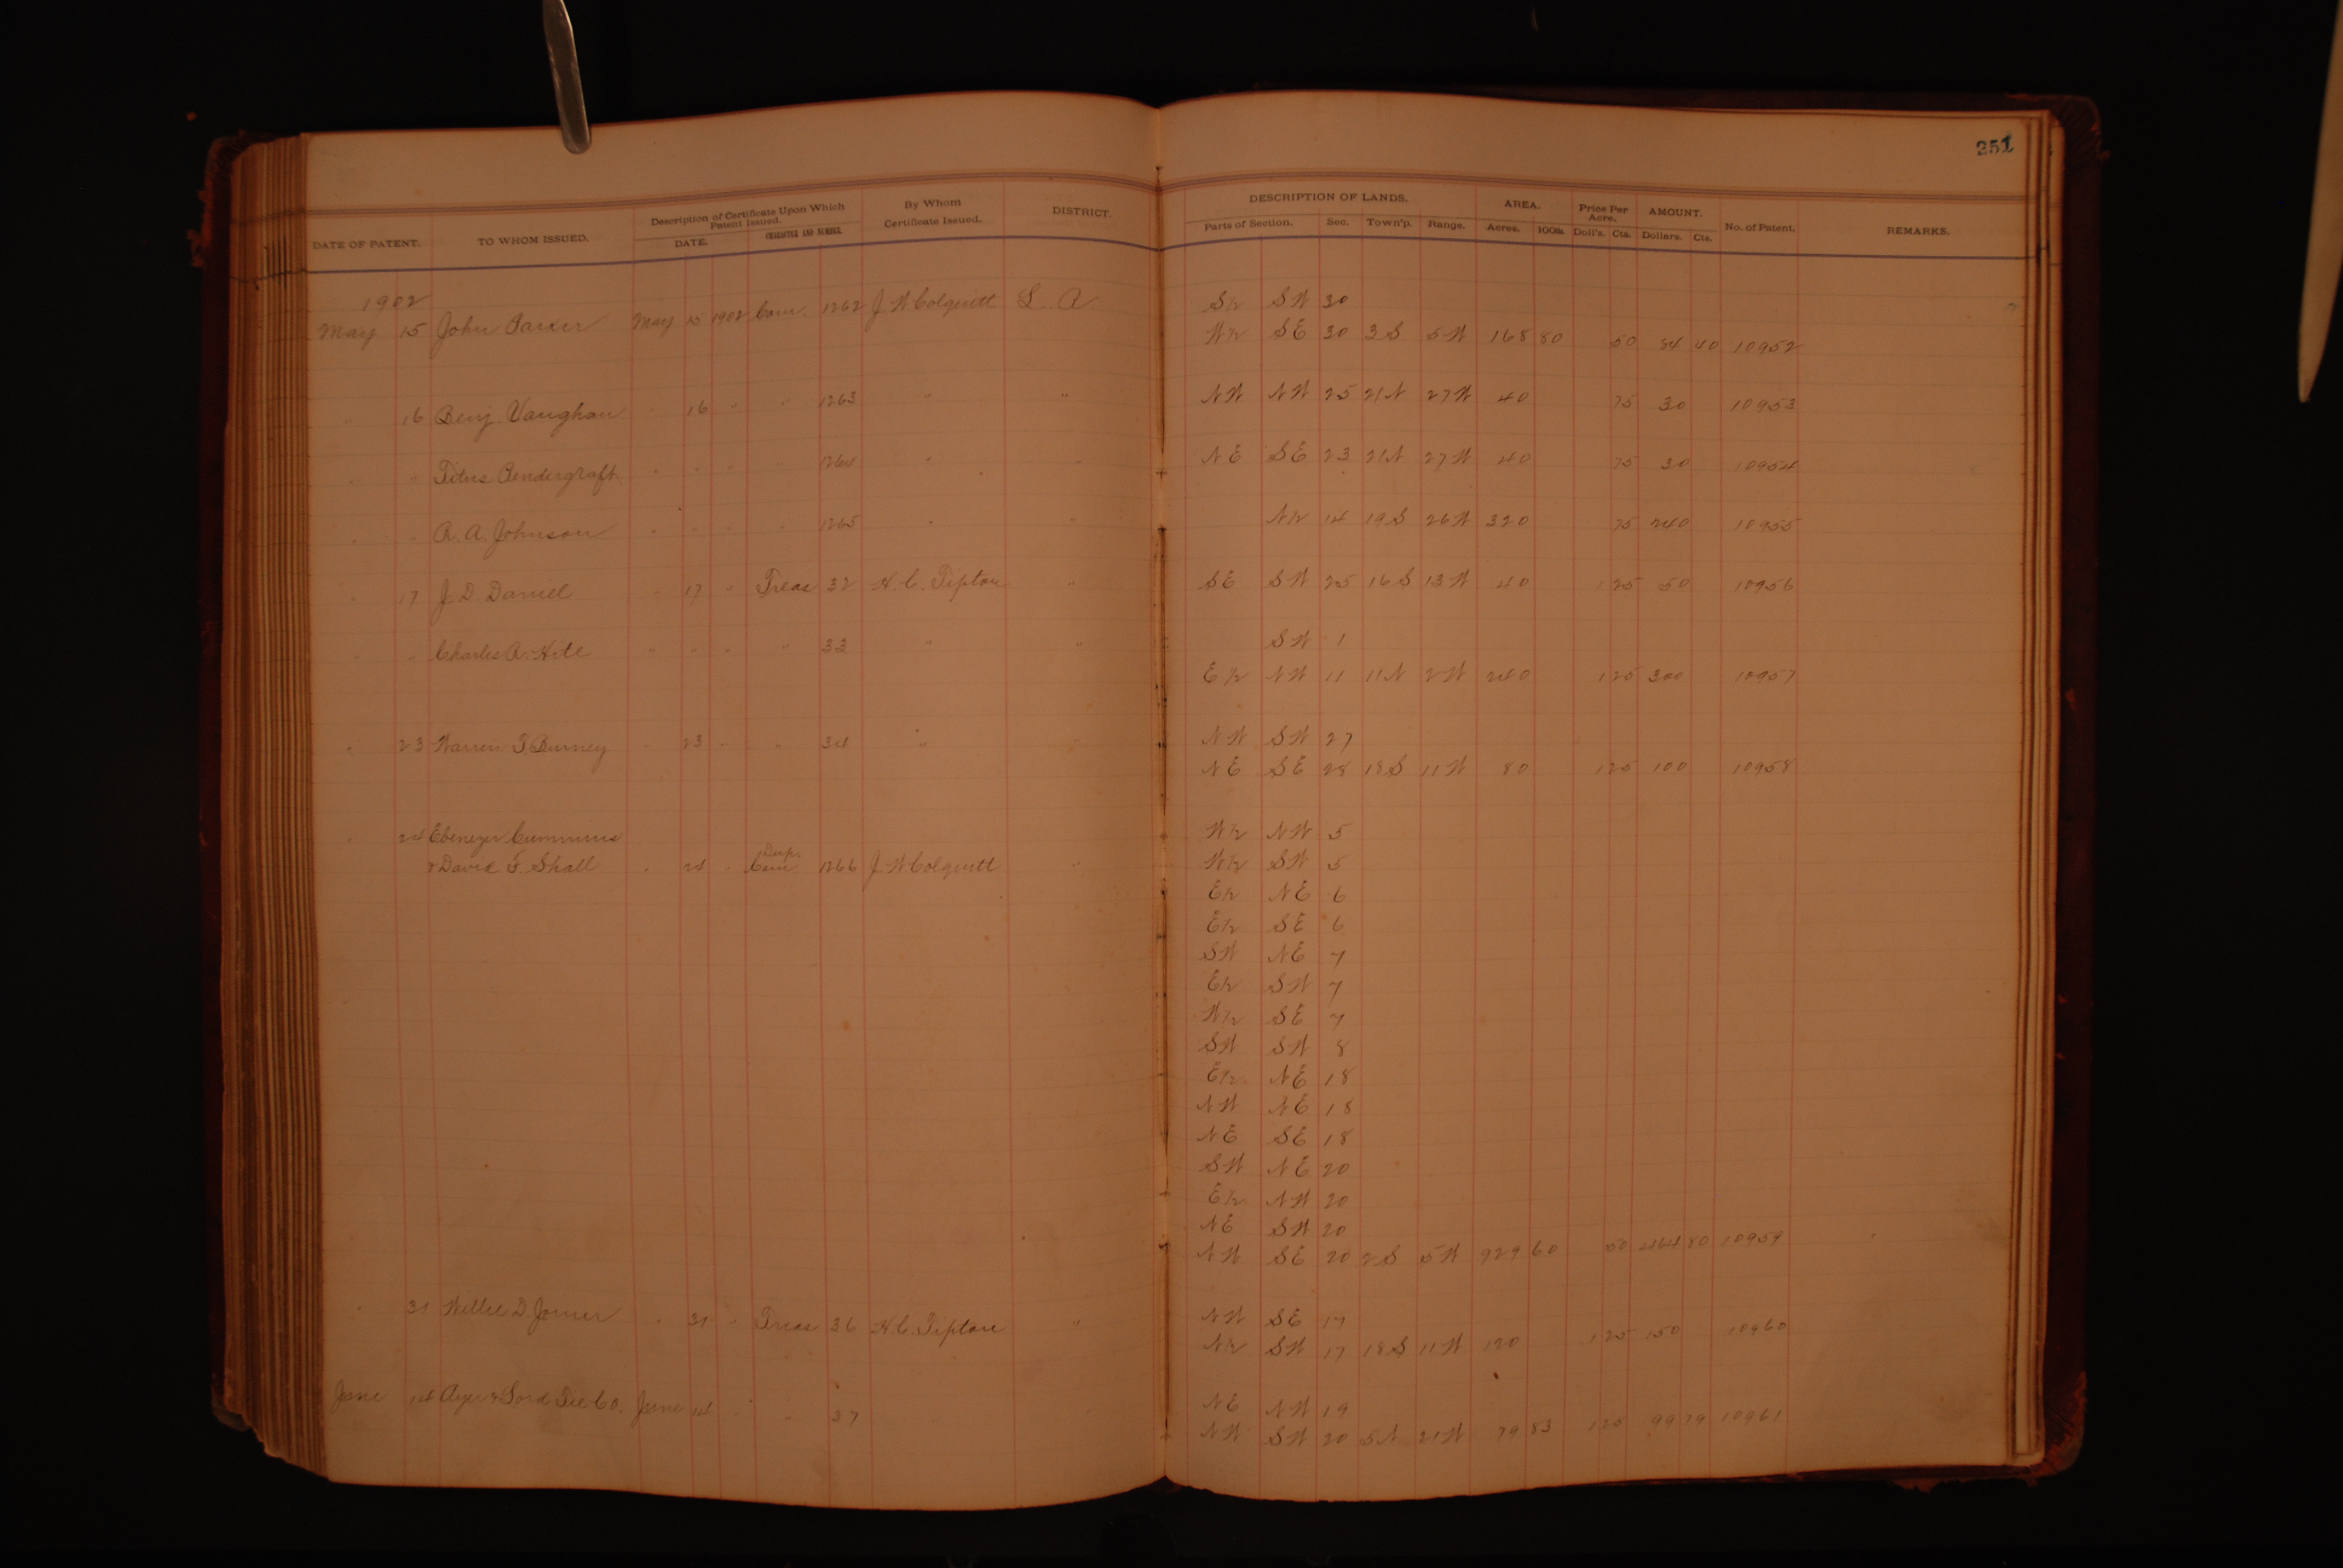 251
DATE OF PATENT. TO WHOM ISSUED. Description of Certificate Upon Which Patent Issued. DATE. CHARACTER AND NUMBER By Whom Certificate Issued. DISTRICT. DESCRIPTION OF LANDS. Parts of Section. Sec. Town'p. Range. AREA. Acres. 100ths. Price Per Acre. Doll's. Cts. AMOUNT. Dollars. Cts. No. of Patent. REMARKS.
1902 S½ SW 30
May 15 John Parker May 15 1902 Com. 1262 J W Colquitt L. R. W½ SE 30 3S 5W 168 80 50 84 40 10952
" 16 Benj. Vaughan " 16 " " 1263 " " NW NW 25 21N 27W 40 75 30 10953
" " Titus Pendergraft " " " " 1264 " " NE SE 23 21N 27W 40 75 30 10954
" " R. A. Johnson " " " " 1265 " " N½ 14 19S 26W 320 75 240 10955
" 17 J. D. Daniel " 17 " Treas 32 H. C. Tipton " SE SW 25 16S 13W 40 1 25 50 10956
" " Charles A. Hite " " " " 33 " " SW 1
E½ NW 11 11N 2W 240 1 25 300 10957
" 23 Warren T. Burney " 23 " " 34 " " NW SW 27
NE SE 28 18S 11W 80 1 25 100 10958
" 24 Ebenezer Cummins W½ NW 5
& David F. Shall " 24 " Dup. Com 1266 J. W Colquitt " W½ SW 5
E½ NE 6
E½ SE 6
SW NE 7
E½ SW 7
W½ SE 7
SW SW 8
E½ NE 18
NW NE 18
NE SE 18
SW NE 20
E½ NW 20
NE SW 20
NW SE 20 2S 5W 929 60 50 464 80 10959
" 31 Willie D. Joiner " 31 " Treas 36 H. C. Tipton " NW SE 17
N½ SW 17 18S 11W 120 1 25 150 10960
June 14 Ayer & Lord Tie Co. June 14 " " 37 " " NE NW 19
NW SW 20 5N 21W 79 83 1 25 99 79 10961